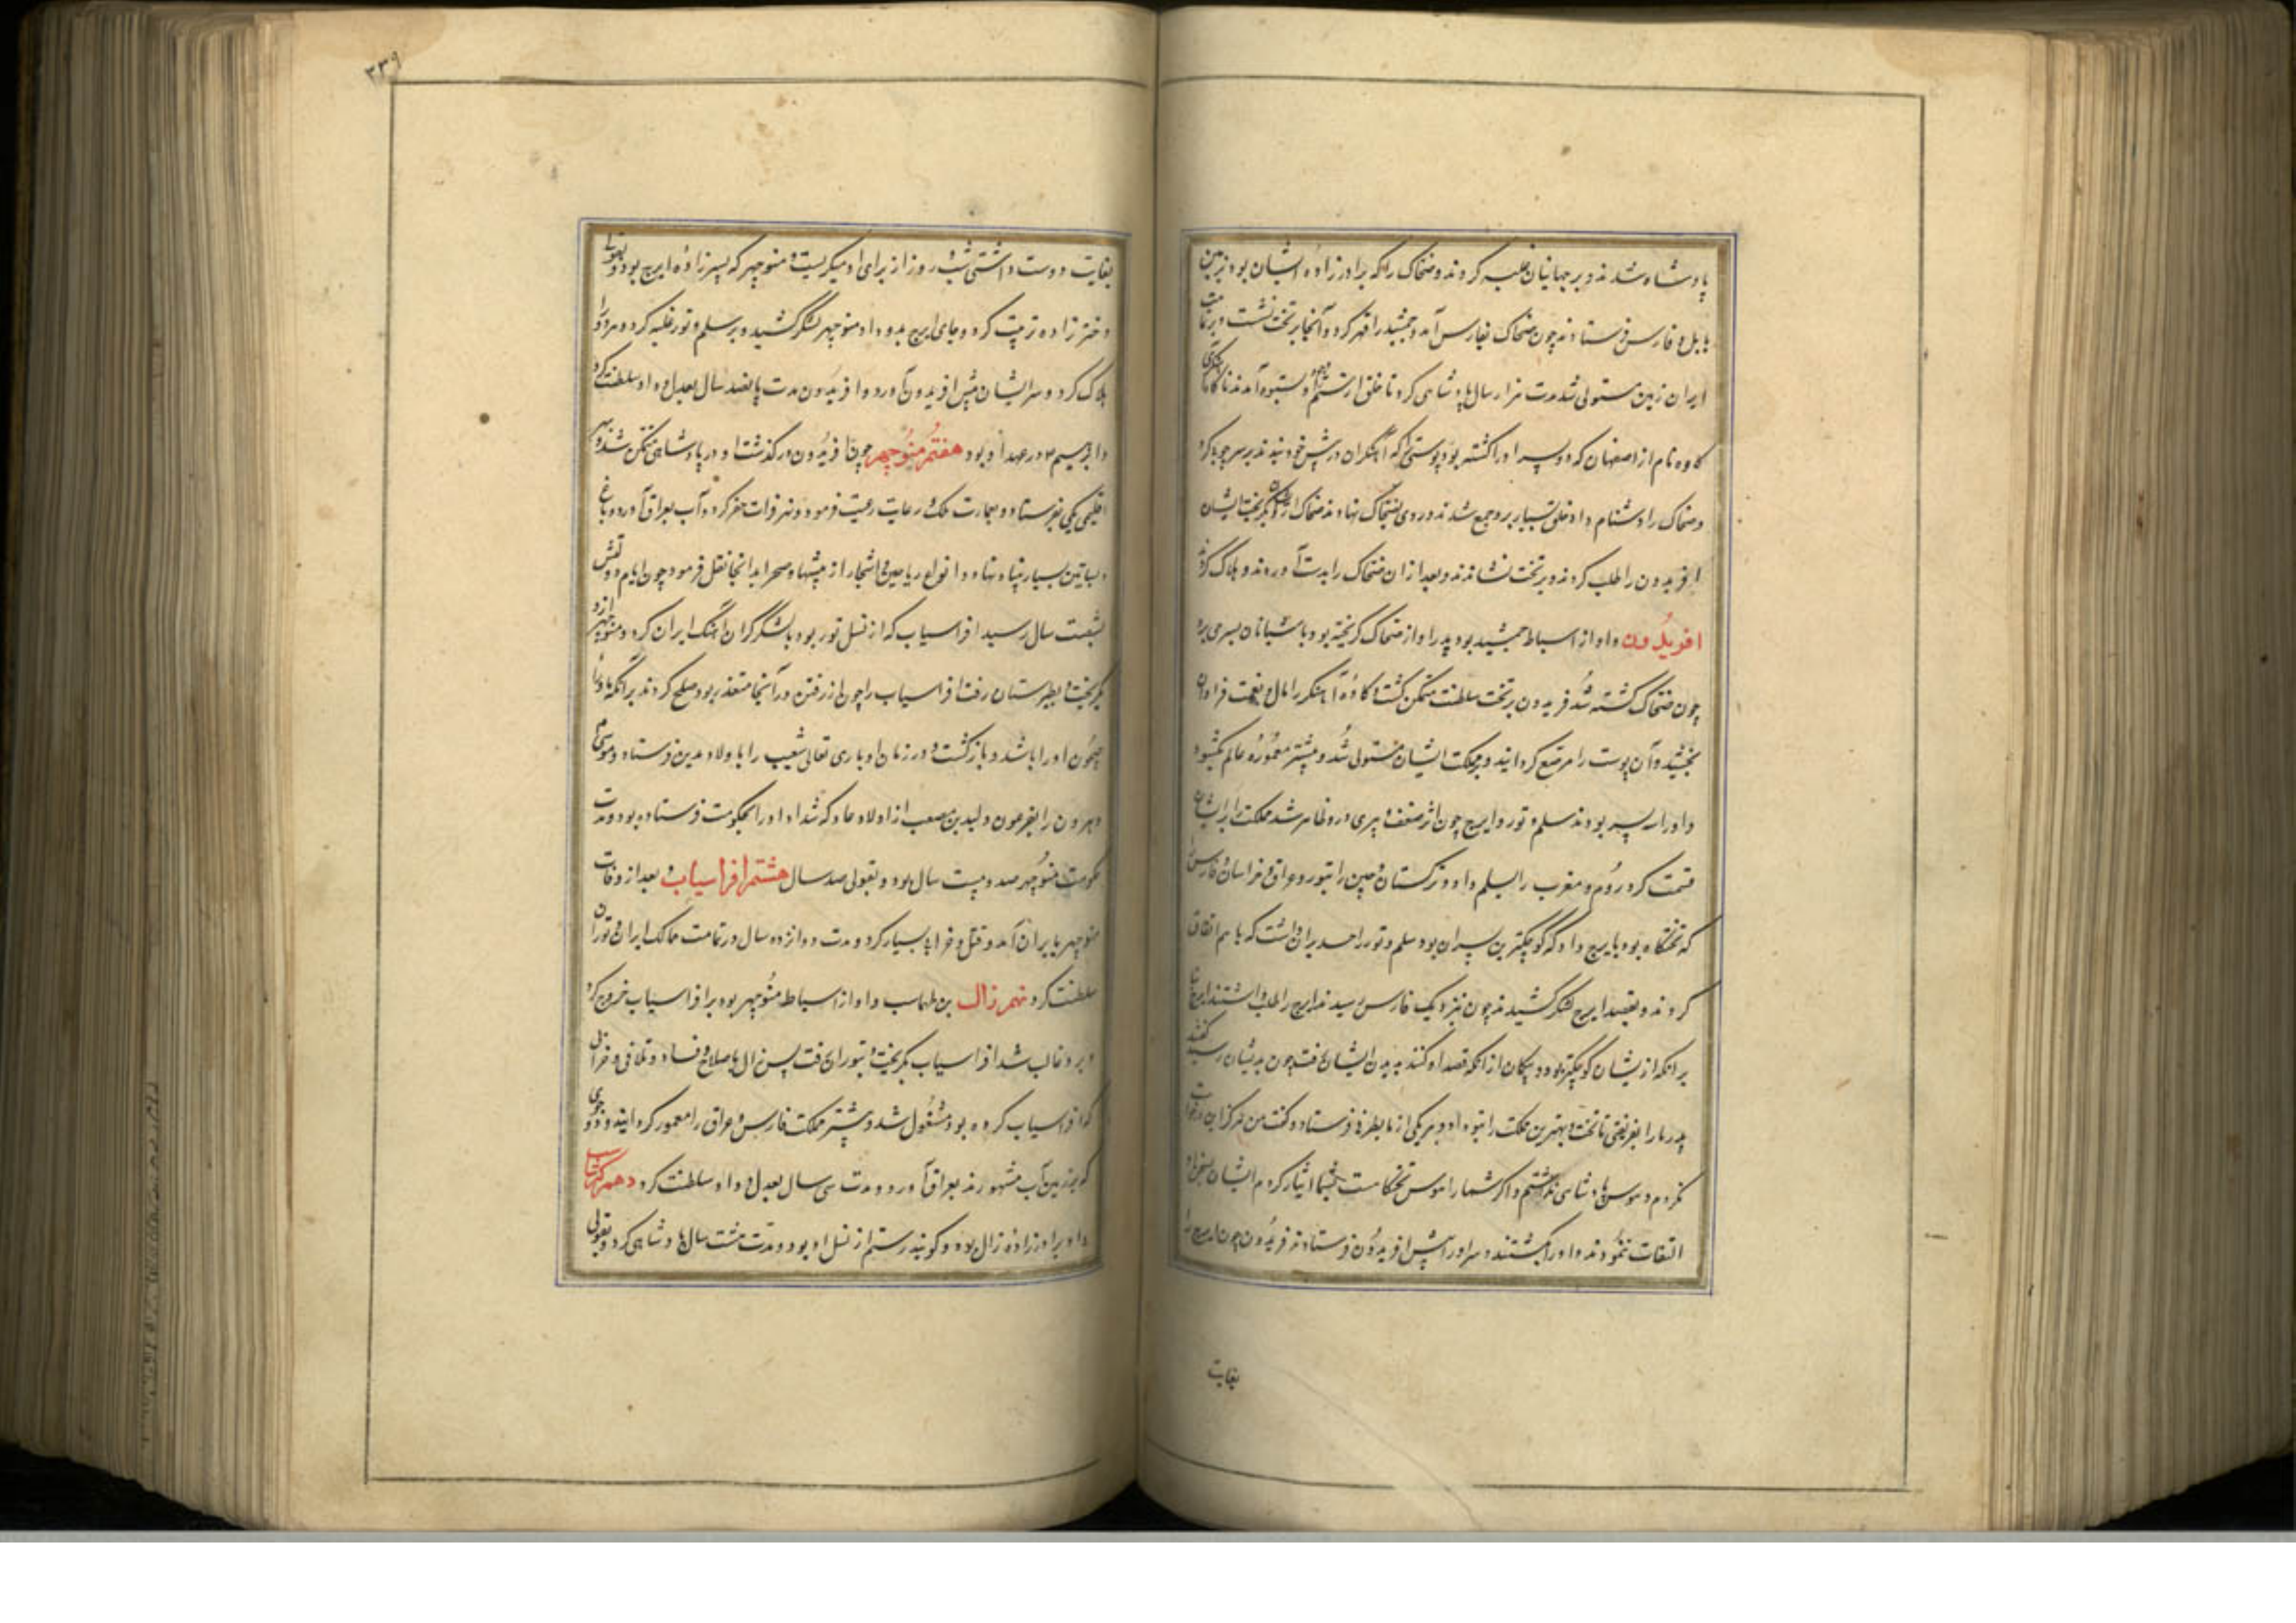 پادشاه شدند و بر جهانیان غلبه کردند و ضحاک را که برادرزاده ایشان بود بزمین
بابل و فارس فرستادند چون ضحاک بفارس آمد و جمشید را قهر کرد و آنجا بر تخت نشست و بر تمامت
ایران زمین مستولی شد مدت هزار سال پادشاهی کرد تا خلق از ستم او بستوه آمدند ناگاه
کاوه نام از اصفهان که دو پسر او را کشته بود پوستی که آهنگران در پیش خود بندند بر سر چوب کرد
و ضحاک را دشنام داد خلق بسیار برو جمع شدند و روی بضحاک نهادند ضحاک از ایشان بگریخت ایشان
افریدون را طلب کردند و بر تخت نشاندند و بعد از ان ضحاک را بدست آوردند و هلاک کردند
افریدون و او از اسباط جمشید بود پدر او از ضحاک گریخته بود با شبانان بسر می برد
چون ضحاک کشته شد فریدون بر تخت سلطنت متمکن گشت و کاوه آهنگر را مال و نعمت فراوان
بخشید و آن پوست را مرصع گردانید و بر مملکت ایشان مستولی شد و بیشتر معموره عالم بگشود
و او را سه پسر بودند سلم و تور و ایرج چون اثر ضعف و پیری درو ظاهر شد مملکت را بر ایشان
قسمت کرد روم و مغرب را بسلم داد و ترکستان و چین را بتور و عراق و خراسان و فارس
که تختگاه بود بایرج داد که کوچکترین پسران بود سلم و تور را حسد بران داشت که با هم اتفاق
کردند و بقصد ایرج لشکر کشیدند چون نزدیک فارس رسیدند ایرج را طلب داشتند ایرج بنا
بر انکه ازیشان کوچکتر بود و بیگان از انکه قصد او کنند بدیدن ایشان رفت چون بدیشان رسید گفتند
پدر ما را بفریفتی تا تخت و بهترین مملکت را بتو داد و هر یکی از ما بطرفی فرستاد و گفت من هرگز این درخواست
نکردم و هوس پادشاهی نداشتم و اگر شما را هوس تختگاهست بشما ایثار کردم ایشان بسخن او
التفات ننمودند و او را بکشتند و سر او را پیش افریدون فرستادند فریدون چون ایرج را
بغایت
۳۳۹
بغایت دوست داشتی شب و روز از برای او میگریست و منوچهر که پسرزاده ایرج بود و بقولی
دخترزاده تربیت کرد و جای ایرج بدو داد منوچهر لشکر کشید و بر سلم و تور غلبه کرد و هر دو را
هلاک کرد و سر ایشان پیش افریدون آورد و افریدون مدت پانصد سال بعدل و داد سلطنت کرد
و ابراهیم در عهد او بود هفتم منوچهر چون افریدون درگذشت او در پادشاهی متمکن شد و بهر
اقلیمی یکی بفرستاد و بعمارت ملک و رعایت رعیت فرمود و نهر فرات حفر کرد و آب بعراق آورد و باغ
و بساتین بسیار بنیاد نهاد و انواع ریاحین و اشجار از بیشها و صحرا بدانجا نقل فرمود چون ایام دولتش
بشصت سال رسید افراسیاب که از نسل تور بود با لشکر گران آهنگ ایران کرد و منوچهر ازو
بگریخت و بطبرستان رفت افراسیاب را چون از رفتن در آنجا متعذر بود صلح کردند بر آنکه ماوراء
جیحون او را باشد و بازگشت و در زمان او باری تعالی شعیب را باولاد مدین فرستاد و موسی
و هرون را بفرعون ولید بن مصعب از اولاد عاد که شداد او را بحکومت فرستاده بود و مدت
حکومت منوچهر صد و بیست سال بود و بقولی صد سال هشتم افراسیاب بعد از وفات
منوچهر بایران آمد و قتل و خرابی بسیار کرد و مدت دوازده سال در تمامت ممالک ایران و توران
سلطنت کرد نهم زال بن طهماسب و او از اسباط منوچهر بود بر افراسیاب خروج کرد
و برو غالب شد افراسیاب بگریخت و بتوران رفت پس زال باصلاح فساد و تلافی خرابی
که افراسیاب کرده بود مشغول شد و بیشتر مملکت فارس و عراق را معمور گردانید و دو جوی
که بزابین آب مشهورند بعراق آورد و مدت سی سال بعدل و داد سلطنت کرد دهم گرشاسب
و او برادرزاده زال بود و گویند رستم از نسل او بود و مدت هشت سال پادشاهی کرد و بقولی